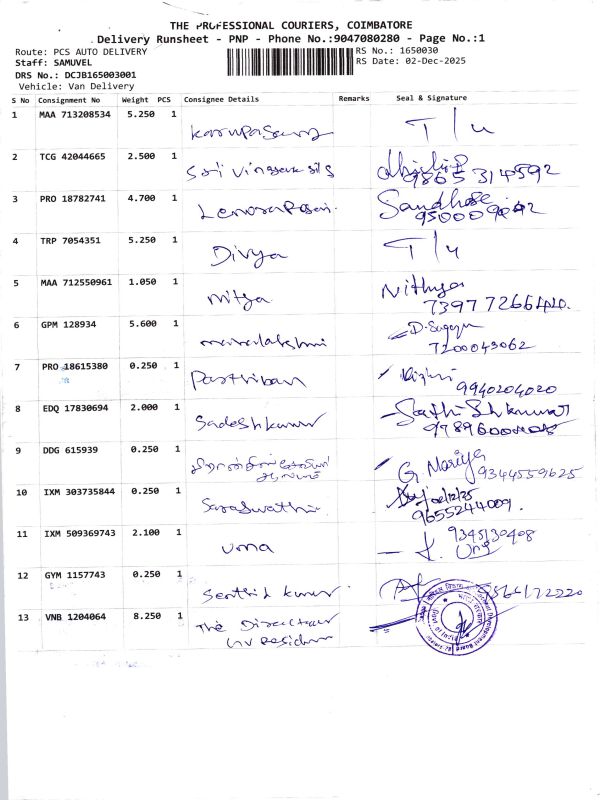 THE PROFESSIONAL COURIERS, COIMBATORE
Delivery Runsheet - PNP - Phone No.:9047080280 - Page No.:1
Route: PCS AUTO DELIVERY
RS No.: 1650030
Staff: SAMUVEL
RS Date: 02-Dec-2025
DRS No.: DCJB165003001
Vehicle: Van Delivery
S No Consignment No Weight PCS Consignee Details Remarks Seal & Signature
1 MAA 713208534 5.250 1 T/u
2 TCG 42044665 2.500 1 Sri Vinayaka sils
9865314592
3 PRO 18782741 4.700 1 Sandhose
4 TRP 7054351 5.250 1 Divya T/u
5 MAA 712550961 1.050 1 nitya Nithya
6 GPM 128934 5.600 1 D. Suganya
7200043062
7 PRO 18615380 0.250 1 Parthiban
9940204020
8 EDQ 17830694 2.000 1 Sadeshkumar Sathishkumar
9 DDG 615939 0.250 1 G. Mariya 9344559625
10 IXM 303735844 0.250 1 Saraswathi 02/12/25
9655244009.
11 IXM 509369743 2.100 1 uma 9345130408
12 GYM 1157743 0.250 1 Senthil kumar
13 VNB 1204064 8.250 1 The Director